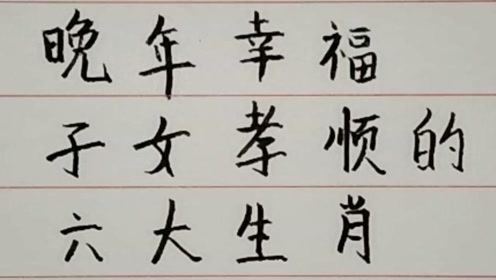 晚年幸福
子女孝顺的
六大生肖